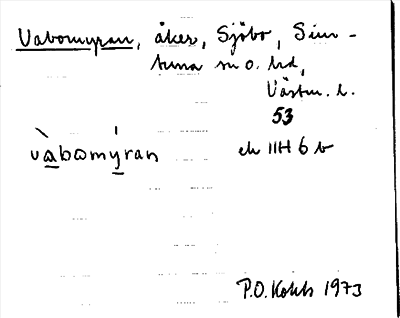 Vabomyran, åker, Sjöbo, Sim-
tuna sn o. hd,
Västm. l.
53
vàbomýran ek 11H 6 b
P.O. Kohls 1973